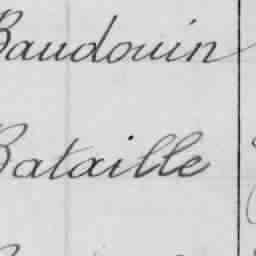 Baudouin
Bataille